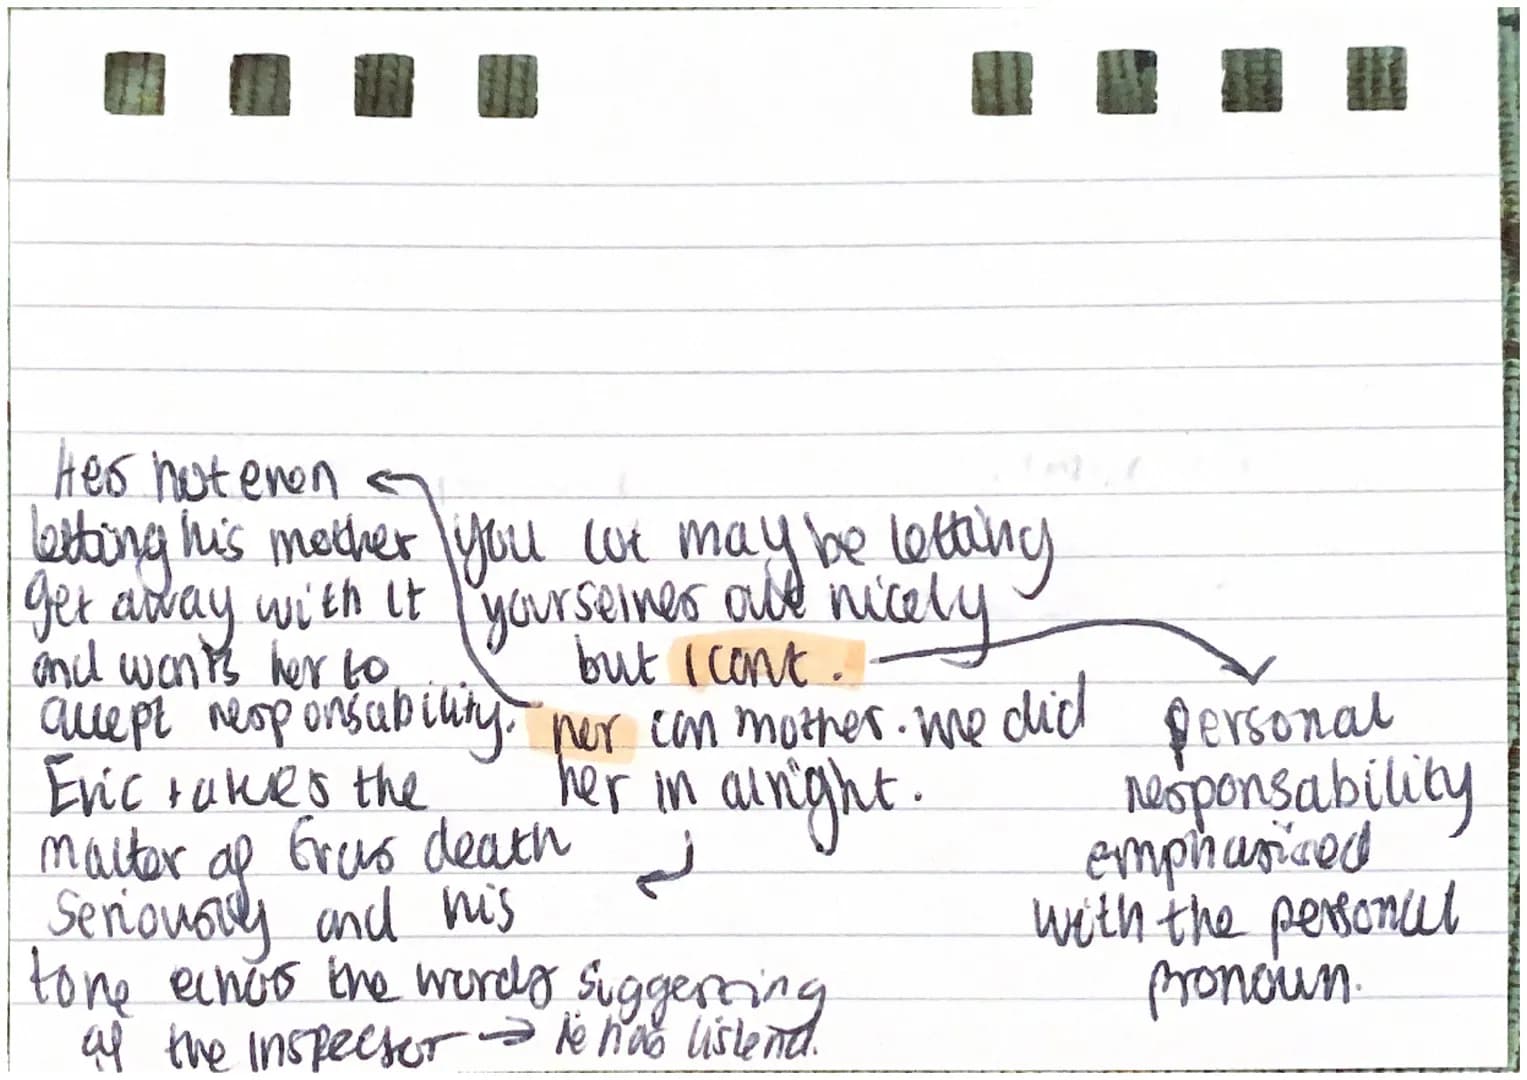 you lot may be letting
yourselves out nicely
but I cant.
ner can mother. we did
her in alright.
Hes not even
letting his mother
get away with it
and wants her to
accept responsability.
Eric takes the
matter of Evas death
seriously and his
tone echos the words
of the inspector → suggesting
he has listend.
personal
responsability
emphasised
with the personal
pronoun.